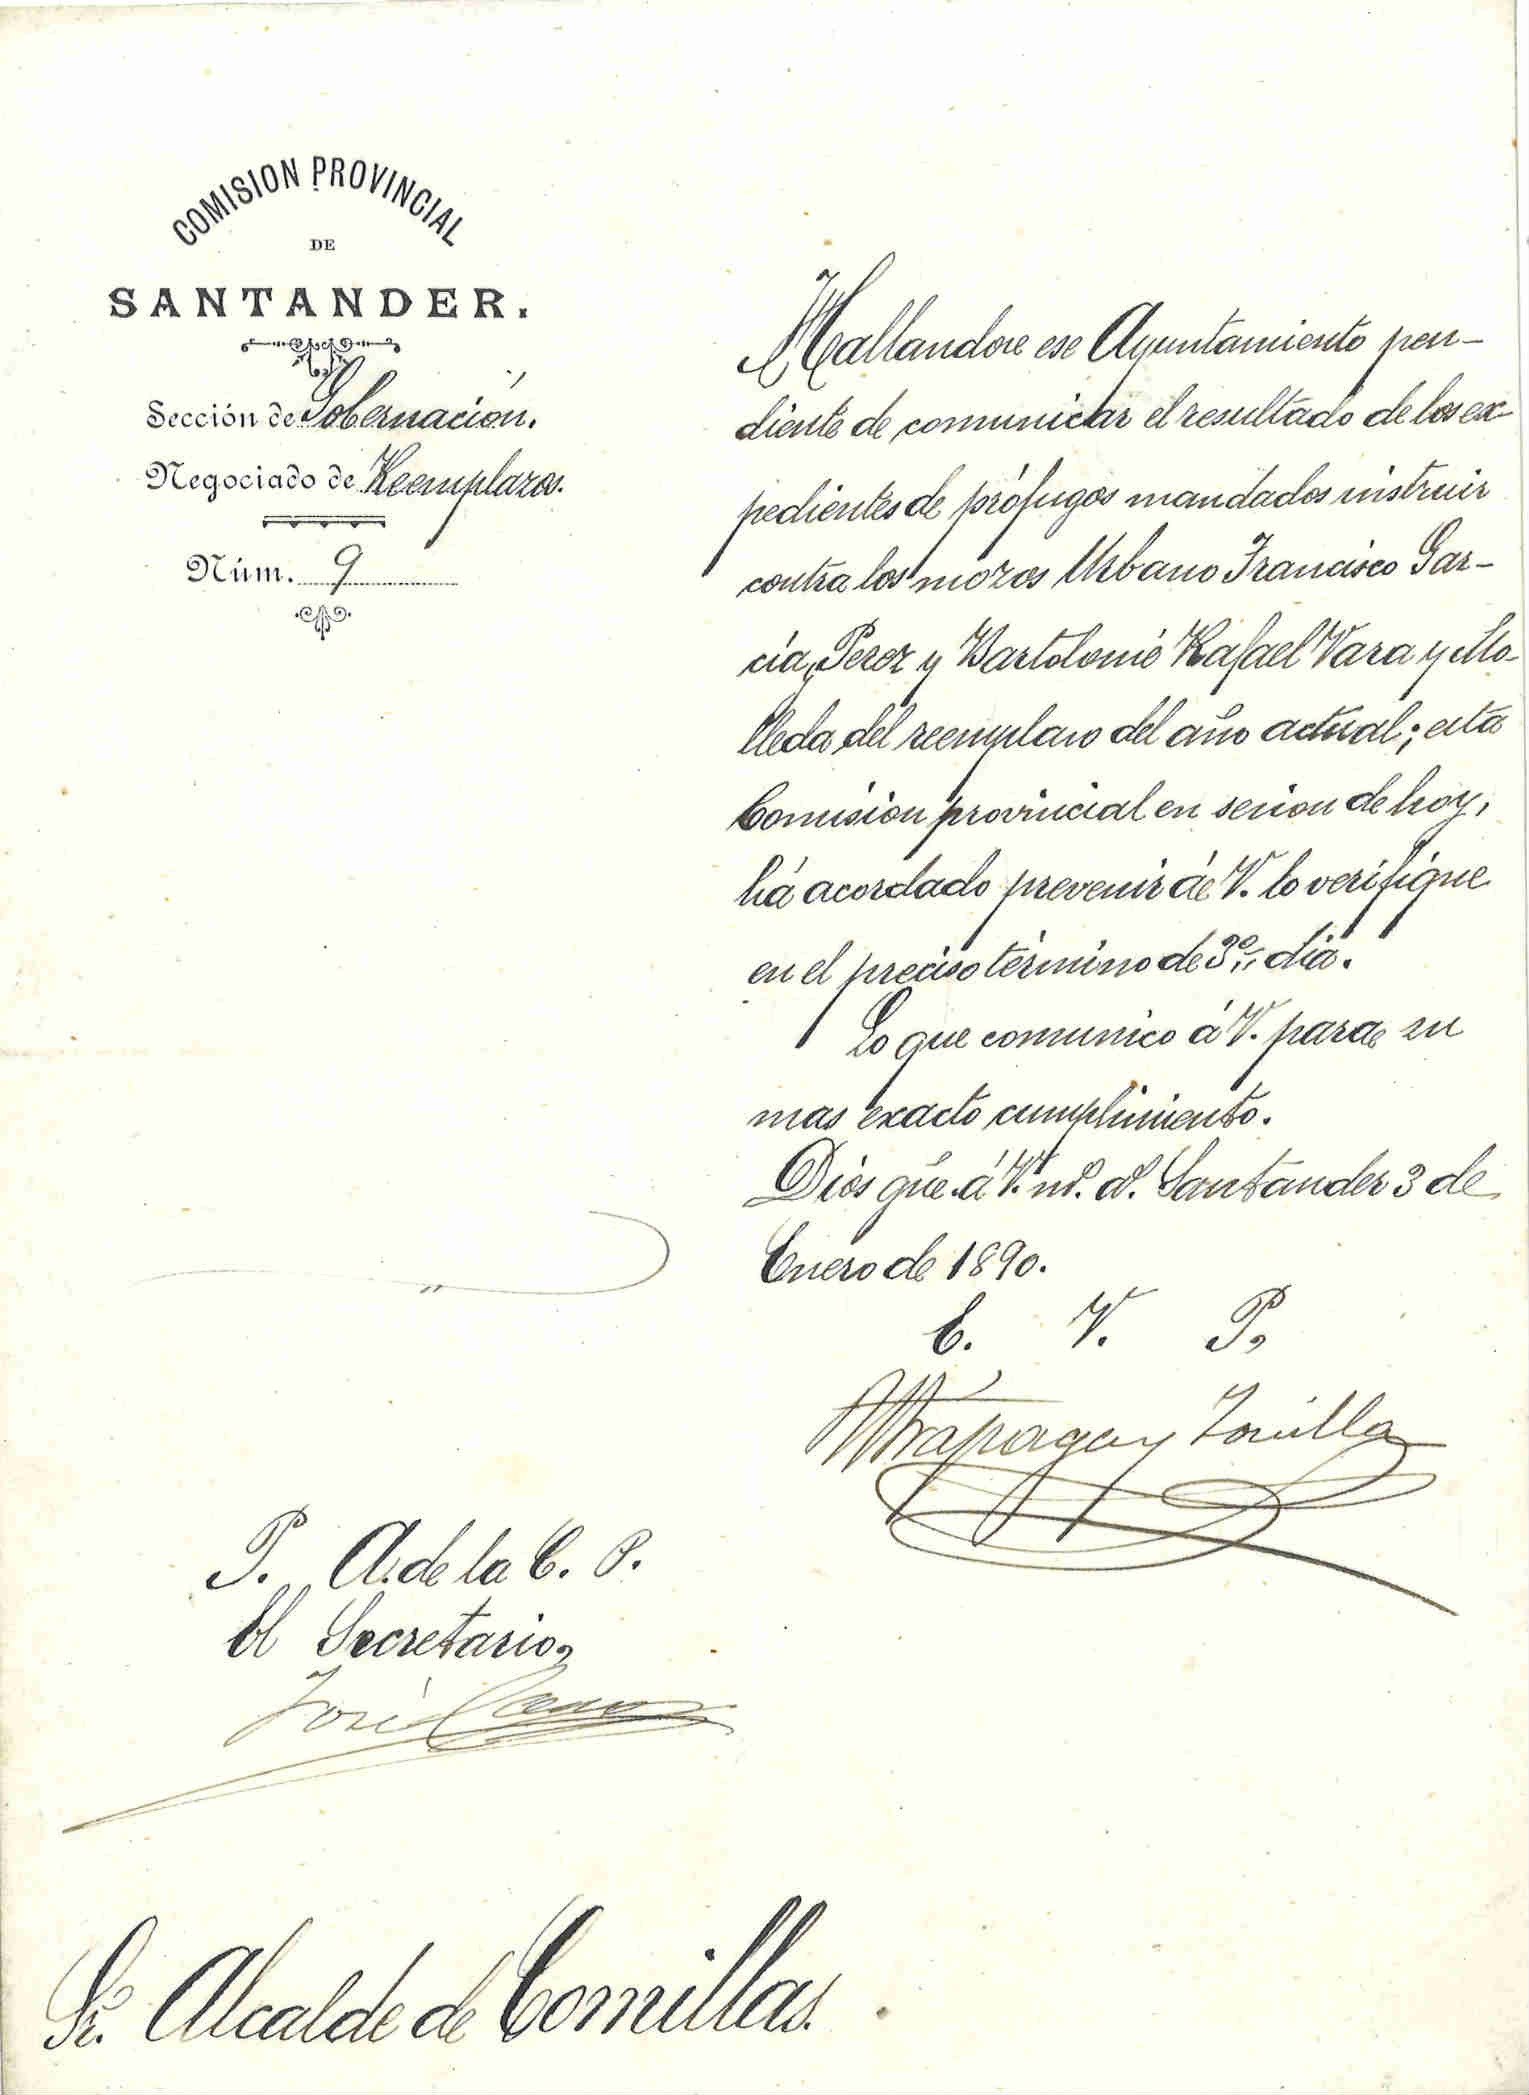 COMISION PROVINCIAL
DE
SANTANDER.
Sección de Gobernación.
Negociado de Reemplazos.
Núm. 9
Hallandose ese Ayuntamiento pen-
diente de comunicar el resultado de los ex-
pedientes de prófugos mandados instruir
contra los mozos Urbano Francisco Gar-
cía, Perez y Bartolomé Rafael Vara y Mo-
lleda del reemplazo del año actual; esta
Comision provincial en sesion de hoy,
há acordado prevenir á V. lo verifique
en el preciso término de 3º dia.
Lo que comunico á V. para su
mas exacto cumplimiento.
Dios gúe. á V. m.s a.s Santander 3 de
Enero de 1890.
E. V. P.,
Trápaga y Zorrilla
P. A. de la C. P.
El Secretario,
José
Sr. Alcalde de Comillas.